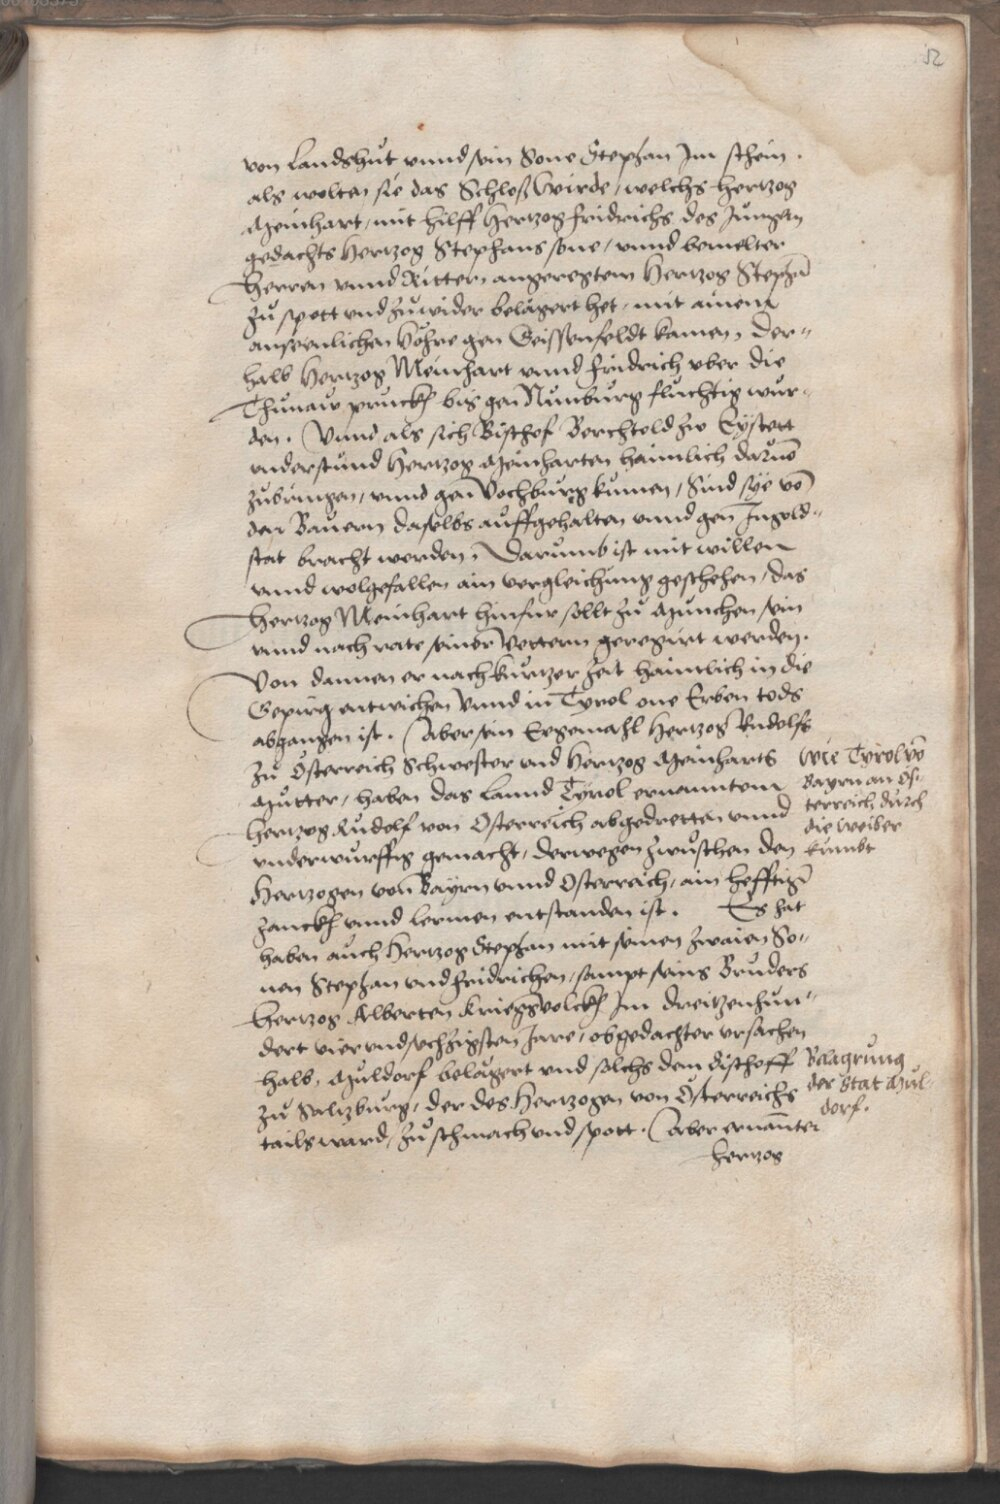 52
von Landshut vnnd sein Sone Stephan Im schein.
als wolten sie das Schloß Wirde, welchs Hertzog
Meinhart, mit hilff Hertzog fridrichs des Jungen
gedachts Hertzog Stephans sone, vnnd bemelter
Herren vnnd Ritter, angeregtem Hertzog Stephā
zu spott vnd zuwider belägert het, mit ainem
ansehenlichen Höhre gen Geissenfeldt kamen, der-
halb Hertzog Meinhart vnnd fridrich vber die
Thunaw pruckh bis gen Nunburg fluchtig wur-
den. Vnnd als sich Bischof Berchtold zw Eystett
vnderstund Hertzog Meinharten haimlich daruō
zubringen, vnnd gen Vochburg kumen, Sind sye vō
den Bauern daselbs auffgehalten vnnd gen Ingold-
stat bracht werden. Darumb ist mit willen
vnnd wolgefallen ain vergleichung geschehen, das
Hertzog Meinhart hinfur sollt zu Munchen sein
vnnd nach rate seiner Vettern geregirt werden.
Von dannen er nach kurtzer zeit haimlich in die
Gepirg entwichen Vnnd in Tyrol one Erben tods
abgangen ist. Aber sein Eegemahl Hertzog Rudolfs
zu Österreich Schwester vnd Hertzog Meinharts
Mutter, haben das Lannd Tyrol ernanntem
Hertzog Rudolf von Österreich abgedretten vnnd
vnderwurffig gemacht, derwegen zwuschen den
Hertzogen von Bayrn vnnd Osterreich, ain hefftigs
zanckh vnnd lermen entstanden ist. Es hat
haben auch Hertzog Stephan mit seinen zwaien So-
nen Stephan vnd fridrichen, sampt seins Bruders
Hertzog Alberten Kriegsvolckh Im dreitzenhun-
dert vier vnd sechzigsten Jare, obgedachter vrsachen
halb, Muldorf belägert vnd solchs dem Bischoff
zu Saltzburg, der des Hertzogen von Österreichs
tails ward, zu schmach vnd spott. Aber ernannter
Hertzog
Wie Tyrol vō
Bayrn an Ös-
terreich durch
die weiber
kumbt
Belagrung
der Stat Mul-
dorf.